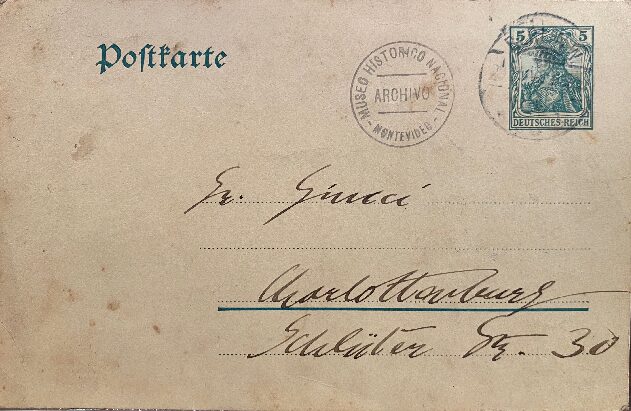 Postkarte
MUSEO HISTORICO NACIONAL
ARCHIVO
MONTEVIDEO
5 5
DEUTSCHES-REICH
Charlottenburg
Schlüter Str. 30